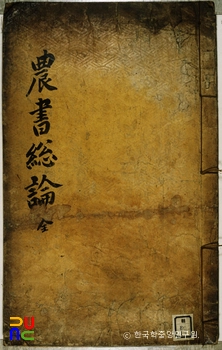 農書總論 全
© 한국학중앙연구원